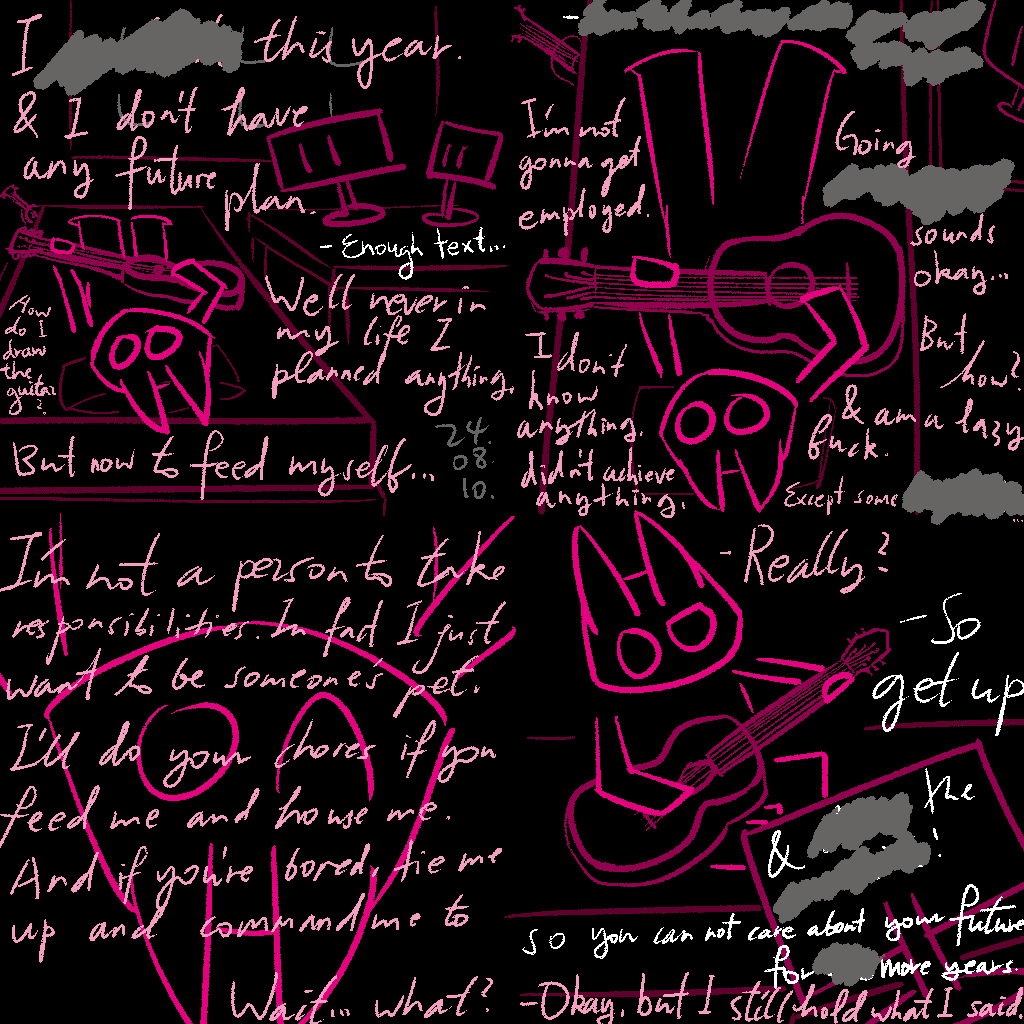 I this year.
& I don't have
any future
plan.
- Enough text...
How
do I
draw
the
guitar?
Well never in
my life I
planned anything.
But now to feed myself...
24.
08.
10.
I'm not
gonna get
employed.
Going
sounds
okay...
But
how?
I don't
know
anything.
didn't achieve
anything.
& am a lazy
fuck.
Except some
...
I'm not a person to take
responsibilities. In fact I just
want to be someone's pet.
I'll do your chores if you
feed me and house me.
And if you're bored, tie me
up and command me to
Wait... what?
- Really?
- So
get up
& the
!
so you can not care about your future
for more years.
- Okay, but I still hold what I said.